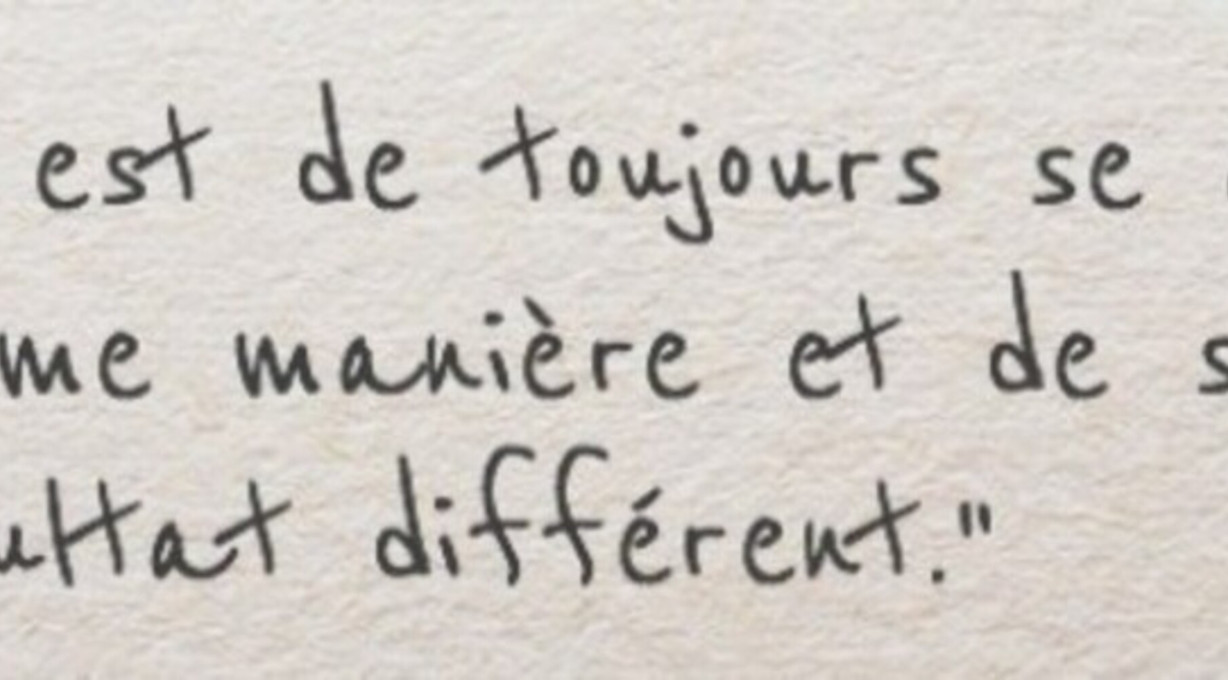 est de toujours se
me manière et de s
ultat différent."